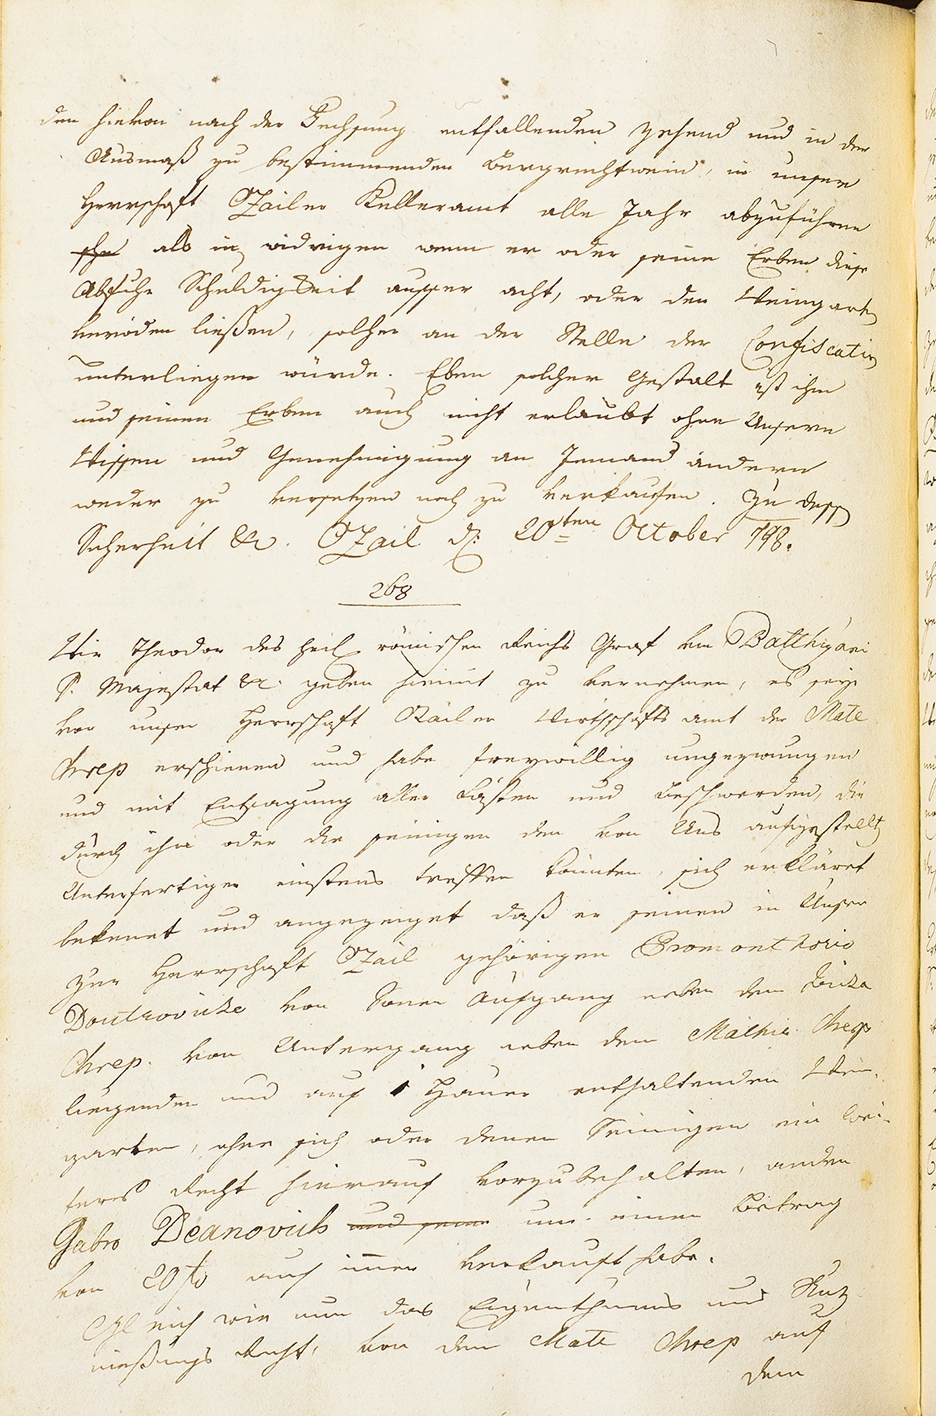 den hievon nach der Fechsung entfallenden Zehend und in der
Ausmaß zu bestimmenden Bergrechtwein, in unser
Herrschaft Ozailer Kelleramt alle Jahr abzuführen
als in widrigen wenn er oder seine Erben diese
Abfuhr Schuldigkeit ausser acht, oder den Weingarten
veröden ließen, solcher an der Stelle der Confiscation
unterliegen würde. Eben solcher Gestalt ist ihm
und seinen Erben auch nicht erlaubt ohne Unsern
Wissen und Genehmigung an Jemand andern
weder zu versetzen noch zu verkaufen. Zu dessen
Sicherheit &c. Ozail d: 20ten October 798.
268
Wir Theodor des heil. römischen Reichs Graf von Batthyani
S. Majestät &c. geben hiemit zu vernehmen, es seye
vor unser Herrschaft Ozailer Wirthschafts amt der Mate
Chrep erschienen und habe freywillig ungezwungen
und mit Entsagung aller Lasten und Beschwerden, die
durch ihn oder die seinigen den von Uns aufgestellt
Unterfertigen einstens treffen könnten, sich erkläret
bekenet und angezeiget daß er seinen in Unser
zur Herrschaft Ozail gehörigen Promonthorio
von Sonen Aufgang neben dem
Chrep. von Untergang neben dem Mathia Chrep
liegenden und auf 1 Hauer enthaltenden Wein-
garten, ohne sich oder denen Seinigen ein wei-
teres Recht hierauf vorzubehalten, anden
Gabro Deanovich und seine um einen Betrag
von 20 f auf imer verkauft habe.
Gleich wie nun das Eigenthums und Nutz-
nießungs Recht, von dem Mate Chrep auf
dem